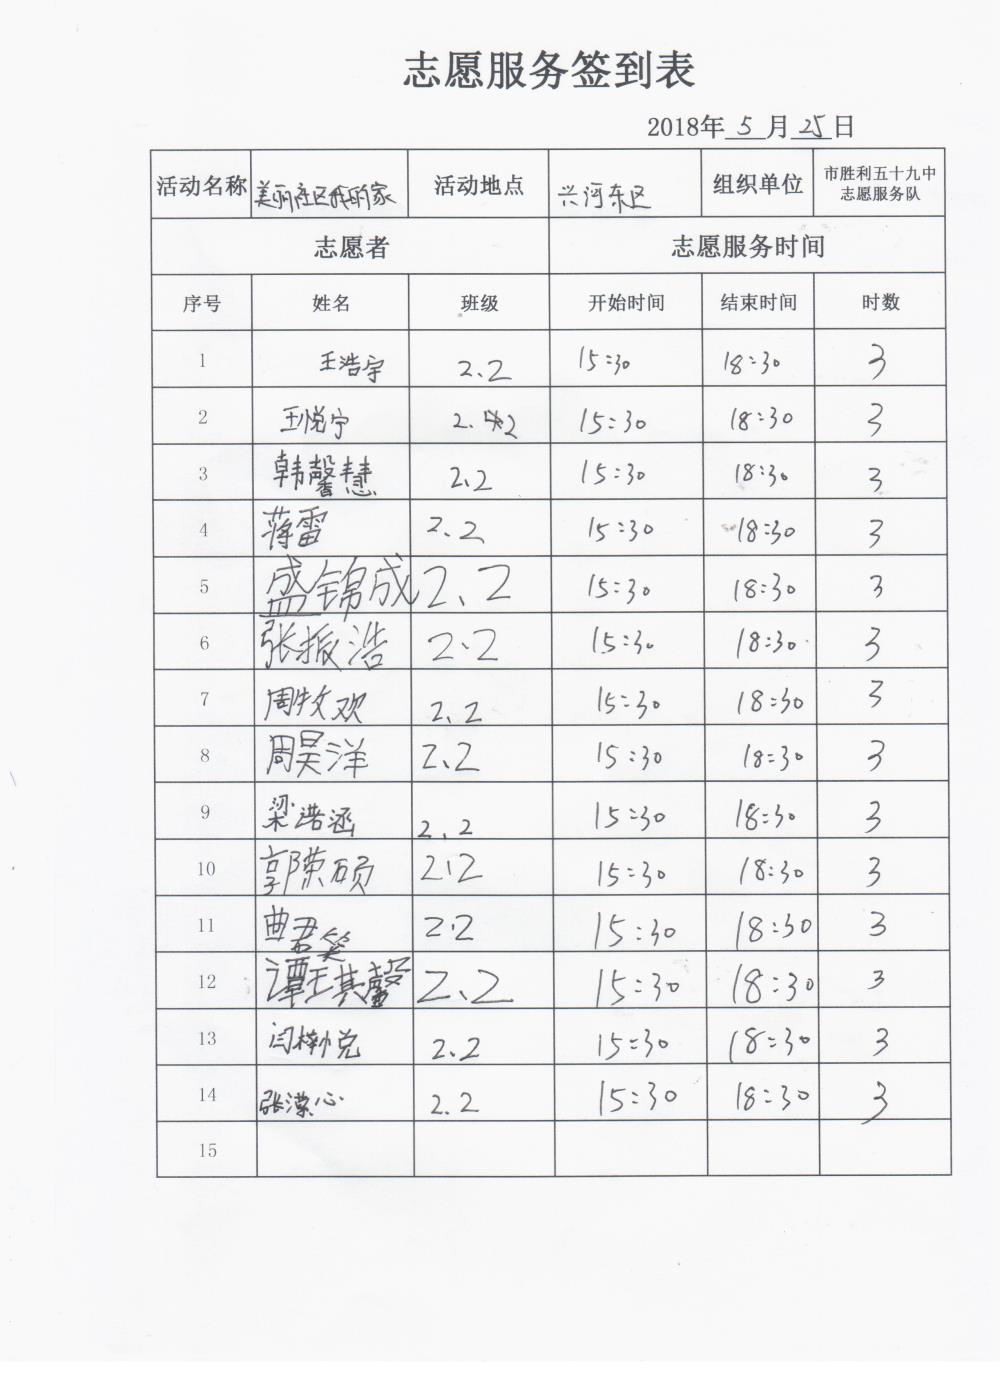 志愿服务签到表
2018年 5 月 25 日
活动名称 美丽社区我的家 活动地点 兴河东区 组织单位 市胜利五十九中志愿服务队
志愿者 志愿服务时间
序号 姓名 班级 开始时间 结束时间 时数
1 王浩宇 2.2 15:30 18:30 3
2 王悦宁 2.2 15:30 18:30 3
3 韩馨慧 2.2 15:30 18:30 3
4 蒋雷 2.2 15:30 18:30 3
5 盛锦成 2.2 15:30 18:30 3
6 张振浩 2.2 15:30 18:30 3
7 周牧欢 2.2 15:30 18:30 3
8 周昊洋 2.2 15:30 18:30 3
9 梁浩涵 2.2 15:30 18:30 3
10 郭荣硕 2.2 15:30 18:30 3
11 曲君笑 2.2 15:30 18:30 3
12 谭王其馨 2.2 15:30 18:30 3
13 闫悦 2.2 15:30 18:30 3
14 张心 2.2 15:30 18:30 3
15